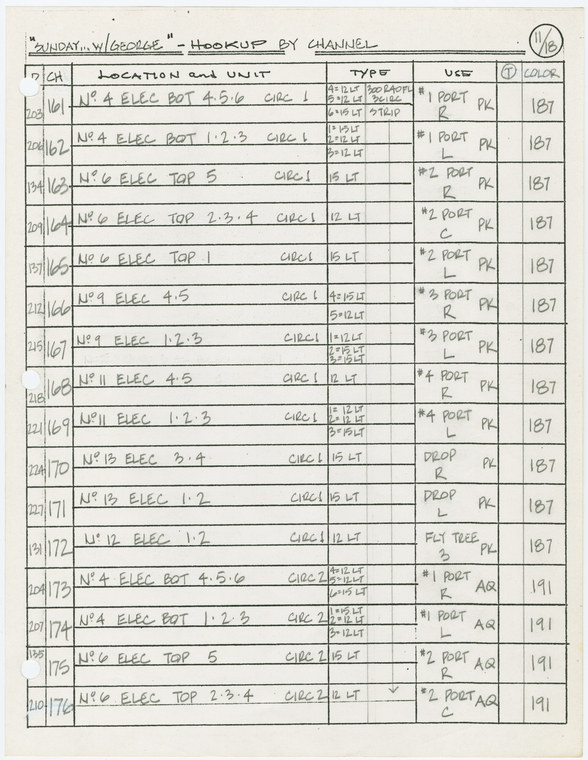 "SUNDAY... W/GEORGE" - HOOKUP BY CHANNEL 11/18
D CH LOCATION and UNIT TYPE USE T COLOR
203 161 Nº 4 ELEC BOT 4·5·6 CIRC 1 4=12 LT 5=12 LT 6=15 LT 300R40FL 3CIRC STRIP #1 PORT R PK 187
206 162 Nº 4 ELEC BOT 1·2·3 CIRC 1 1=15LT 2=12 LT 3=12 LT #1 PORT L PK 187
134 163 Nº 6 ELEC TOP 5 CIRC 1 15 LT #2 PORT R PK 187
209 164 Nº 6 ELEC TOP 2·3·4 CIRC 1 12 LT #2 PORT C PK 187
137 165 Nº 6 ELEC TOP 1 CIRC 1 15 LT #2 PORT L PK 187
212 166 Nº 9 ELEC 4·5 CIRC 1 4=15LT 5=12LT #3 PORT R PK 187
215 167 Nº 9 ELEC 1·2·3 CIRC 1 1=12LT 2=15LT 3=15LT #3 PORT L PK 187
218 168 Nº 11 ELEC 4·5 CIRC 1 12 LT #4 PORT R PK 187
221 169 Nº 11 ELEC 1·2·3 CIRC 1 1=12 LT 2=12 LT 3=15LT #4 PORT L PK 187
224 170 Nº 13 ELEC 3·4 CIRC 1 15 LT DROP R PK 187
227 171 Nº 13 ELEC 1·2 CIRC 1 15 LT DROP L PK 187
131 172 Nº 12 ELEC 1·2 CIRC 1 12 LT FLY TREE 3 PK 187
204 173 Nº 4 ELEC BOT 4·5·6 CIRC 2 4=12 LT 5=12 LT 6=15 LT #1 PORT R AQ 191
207 174 Nº 4 ELEC BOT 1·2·3 CIRC 2 1=15LT 2=12 LT 3=12 LT #1 PORT L AQ 191
135 175 Nº 6 ELEC TOP 5 CIRC 2 15 LT #2 PORT R AQ 191
210 176 Nº 6 ELEC TOP 2·3·4 CIRC 2 12 LT #2 PORT C AQ 191